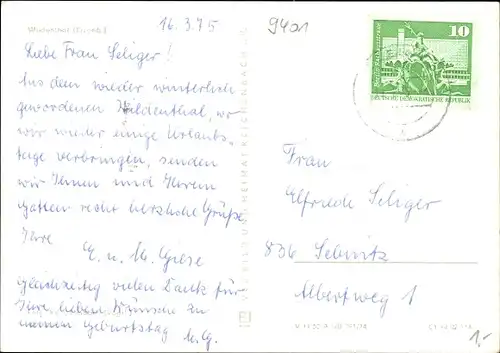 16.3.75
9401
Liebe Frau Seliger!
Aus dem wieder winterlich
gewordenen Wildenthal, wo
wir wieder einige Urlaubs-
tage verbringen, senden
wir Ihnen und Ihrem
Gatten recht herzliche Grüße
Ihre
E. u. M. Giese
Gleichzeitig vielen Dank für
Ihre lieben Wünsche zu
meinem Geburtstag M. G.
10
DEUTSCHE DEMOKRATISCHE REPUBLIK
Frau
Elfriede Seliger
836 Sebnitz
Albertweg 1
1,-